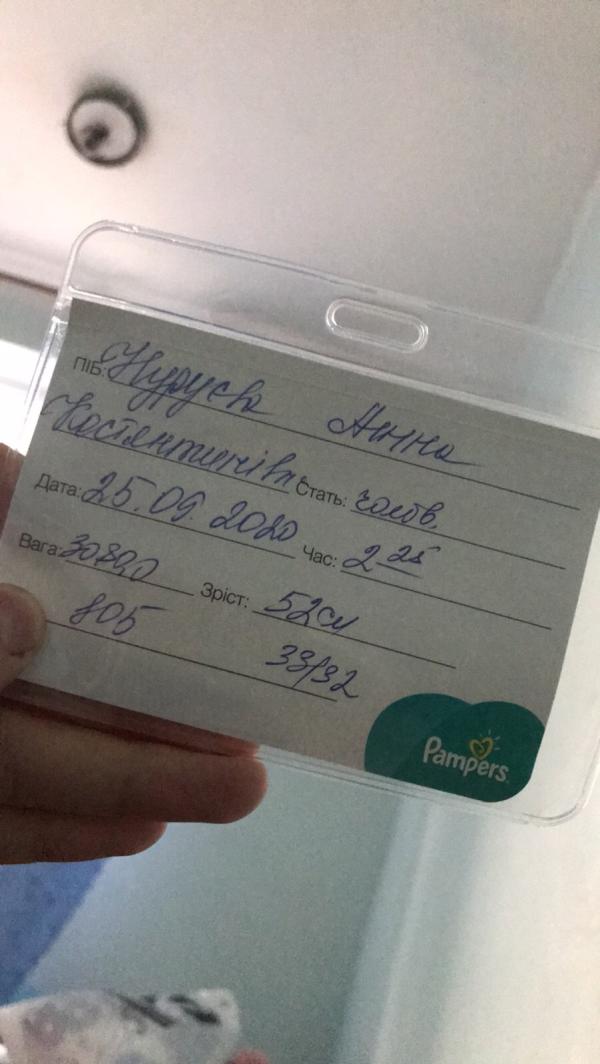 ПІБ: Нурусва Анна
Костянтинівн. Стать: чолов.
Дата: 25.09.2020 Час: 2 25
Вага: 3080,0 Зріст: 52см
805 33/32
Pampers